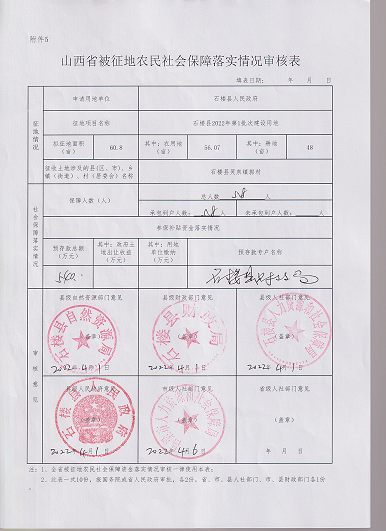 附件5
山西省被征地农民社会保障落实情况审核表
填表日期: 年 月 日
征地情况
申请用地单位 石楼县人民政府
征地项目名称 石楼县2022年第1批次建设用地
拟征地面积(亩) 60.8 其中:农用地(亩) 56.07 其中:耕地(亩) 48
征收土地涉及的县(区、市)、乡镇(街道)、村(居委会)名称
社会保障落实情况
保障人数(人) 总人数 人
承包到户人数: 人 未承包到户人数: 人
参保补贴资金落实情况
预存款总额(万元) 其中:政府土地出让收益(万元) 其中:用地单位缴纳(万元) 预存款专户名称
石楼县
审核意见
县级自然资源部门意见 县级财政部门意见 县级人社部门意见
石楼县自然资源局 石楼县财政局 石楼县人力资源和社会保障局
(盖章) (盖章) (盖章)
2022年4月1日 2022年4月1日 2022年4月1日
县级人民政府意见 市级人社部门意见 省级人社部门意见
石楼县人民政府
(盖章) (盖章)
2022年4月1日 2022年4月6日 年 月 日
注:1、全省被征地农民社会保障资金落实情况审核一律使用本表;
2、此表一式10份,报国务院或省人民政府审批,各2份,省、市、县人社部门、市、县财政部门各1份